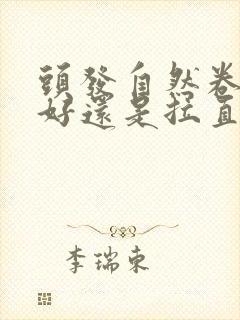 頭發自然卷
好還是拉直
李瑞東